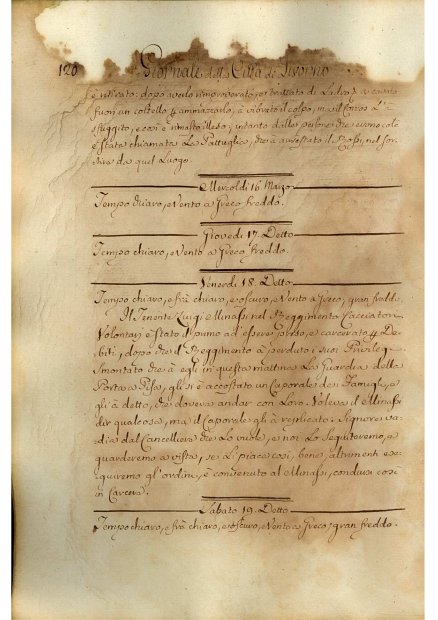 120 Giornale della Città di Livorno
è ritirato: dopo averlo rimproverato, e trattato di Ladro, à cavato
fuori un coltello p ammazzarlo, à vibrato il colpo, ma il
sfuggito, e così è rimasto illeso; intanto dalle persone che erano colà
è stata chiamata La Pattuglia, che à arrestato il Rossi, nel sor-
tire da quel Luogo.
Mercoldi 16. Marzo
Tempo chiaro, e Vento a Greco freddo.
Giovedi 17. Detto
Tempo chiaro, e Vento a Greco freddo.
Venerdi 18. Detto
Tempo chiaro, e frà chiaro, e oscuro, e Vento a Greco, gran freddo.
Il Tenente Luigi Minassi nel Reggimento Cacciatori
Volontari è stato il primo ad essere preso, e carcerato p De-
biti, dopo che il Reggimento à perduto i suoi Privilegi
Smontato che à egli in questa mattina La Guardia della
Porta a Pisa, gli si è accostato un Caporale de Famigli, e
gli à detto, che doveva andar con Loro. Voleva il Minassi
dir qualcosa, ma il Caporale gli à replicato: Signore va-
dia dal Cancelliere che Lo vuole, e noi Lo seguiteremo, e
guarderemo a vista, se Li piace così, bene; altrimenti ese-
guiremo gl'ordini, è convenuto al Minassi, condursi così
in Carcere.
Sabato 19. Detto
Tempo chiaro, e frà chiaro, e oscuro, e Vento a Greco, gran freddo.